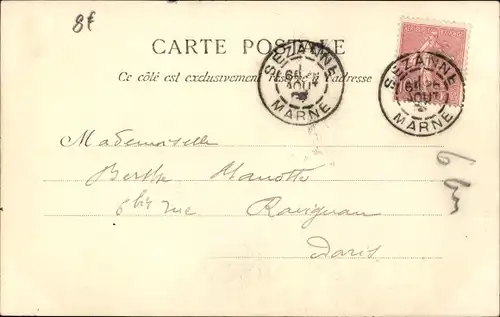 8f
CARTE POSTALE
Ce côté est exclusivement réservé à l'adresse
SÉZANNE
AOUT
MARNE
SÉZANNE
AOUT
MARNE
Mademoiselle
Berthe Manotte
6 bis rue Ravignan
Paris